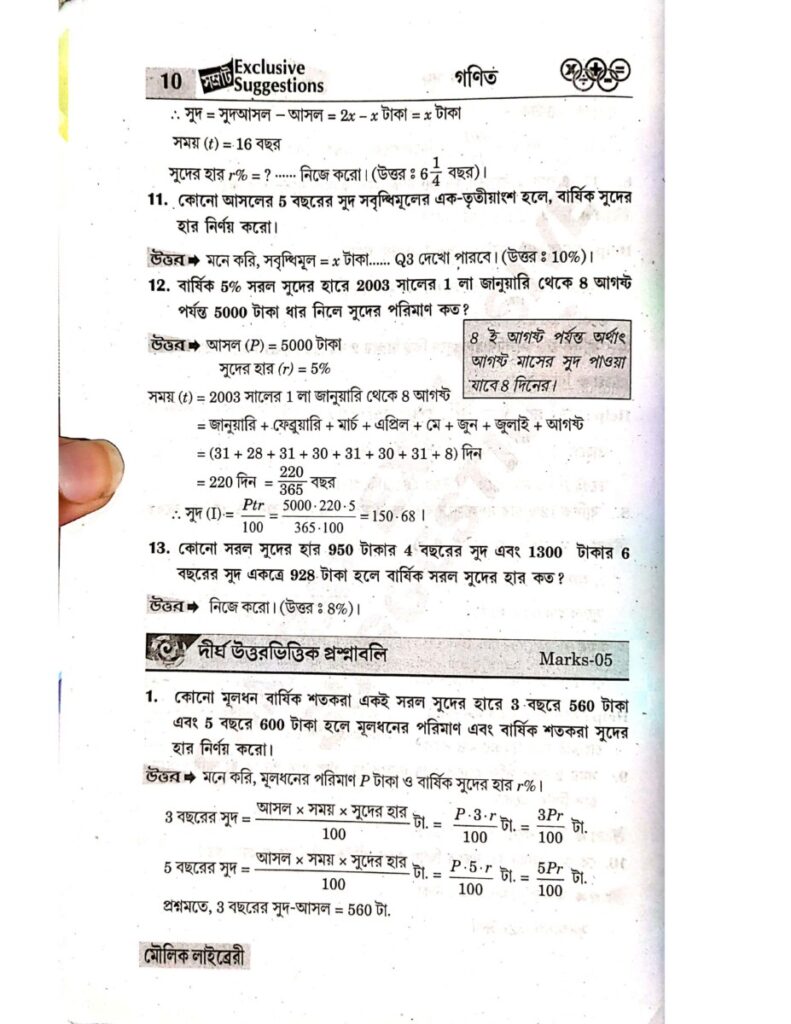 10 সম্রাট Exclusive Suggestions গণিত
∴ সুদ = সুদআসল – আসল = 2x – x টাকা = x টাকা
সময় (t) = 16 বছর
সুদের হার r% = ? ...... নিজে করো। (উত্তর ঃ 6 1/4 বছর)।
11. কোনো আসলের 5 বছরের সুদ সবৃদ্ধিমূলের এক-তৃতীয়াংশ হলে, বার্ষিক সুদের
হার নির্ণয় করো।
উত্তর ➡ মনে করি, সবৃদ্ধিমূল = x টাকা...... Q3 দেখো পারবে। (উত্তর ঃ 10%)।
12. বার্ষিক 5% সরল সুদের হারে 2003 সালের 1 লা জানুয়ারি থেকে 8 আগষ্ট
পর্যন্ত 5000 টাকা ধার নিলে সুদের পরিমাণ কত?
উত্তর ➡ আসল (P) = 5000 টাকা
সুদের হার (r) = 5%
8 ই আগষ্ট পর্যন্ত অর্থাৎ
আগষ্ট মাসের সুদ পাওয়া
যাবে 8 দিনের।
সময় (t) = 2003 সালের 1 লা জানুয়ারি থেকে 8 আগষ্ট
= জানুয়ারি + ফেব্রুয়ারি + মার্চ + এপ্রিল + মে + জুন + জুলাই + আগষ্ট
= (31 + 28 + 31 + 30 + 31 + 30 + 31 + 8) দিন
= 220 দিন = 220/365 বছর
∴ সুদ (I) = Ptr/100 = 5000·220·5/365·100 = 150·68 ।
13. কোনো সরল সুদের হার 950 টাকার 4 বছরের সুদ এবং 1300 টাকার 6
বছরের সুদ একত্রে 928 টাকা হলে বার্ষিক সরল সুদের হার কত?
উত্তর ➡ নিজে করো। (উত্তর ঃ 8%)।
দীর্ঘ উত্তরভিত্তিক প্রশ্নাবলি Marks-05
1. কোনো মূলধন বার্ষিক শতকরা একই সরল সুদের হারে 3 বছরে 560 টাকা
এবং 5 বছরে 600 টাকা হলে মূলধনের পরিমাণ এবং বার্ষিক শতকরা সুদের
হার নির্ণয় করো।
উত্তর ➡ মনে করি, মূলধনের পরিমাণ P টাকা ও বার্ষিক সুদের হার r%।
3 বছরের সুদ = আসল × সময় × সুদের হার/100 টা. = P·3·r/100 টা. = 3Pr/100 টা.
5 বছরের সুদ = আসল × সময় × সুদের হার/100 টা. = P·5·r/100 টা. = 5Pr/100 টা.
প্রশ্নমতে, 3 বছরের সুদ-আসল = 560 টা.
মৌলিক লাইব্রেরী